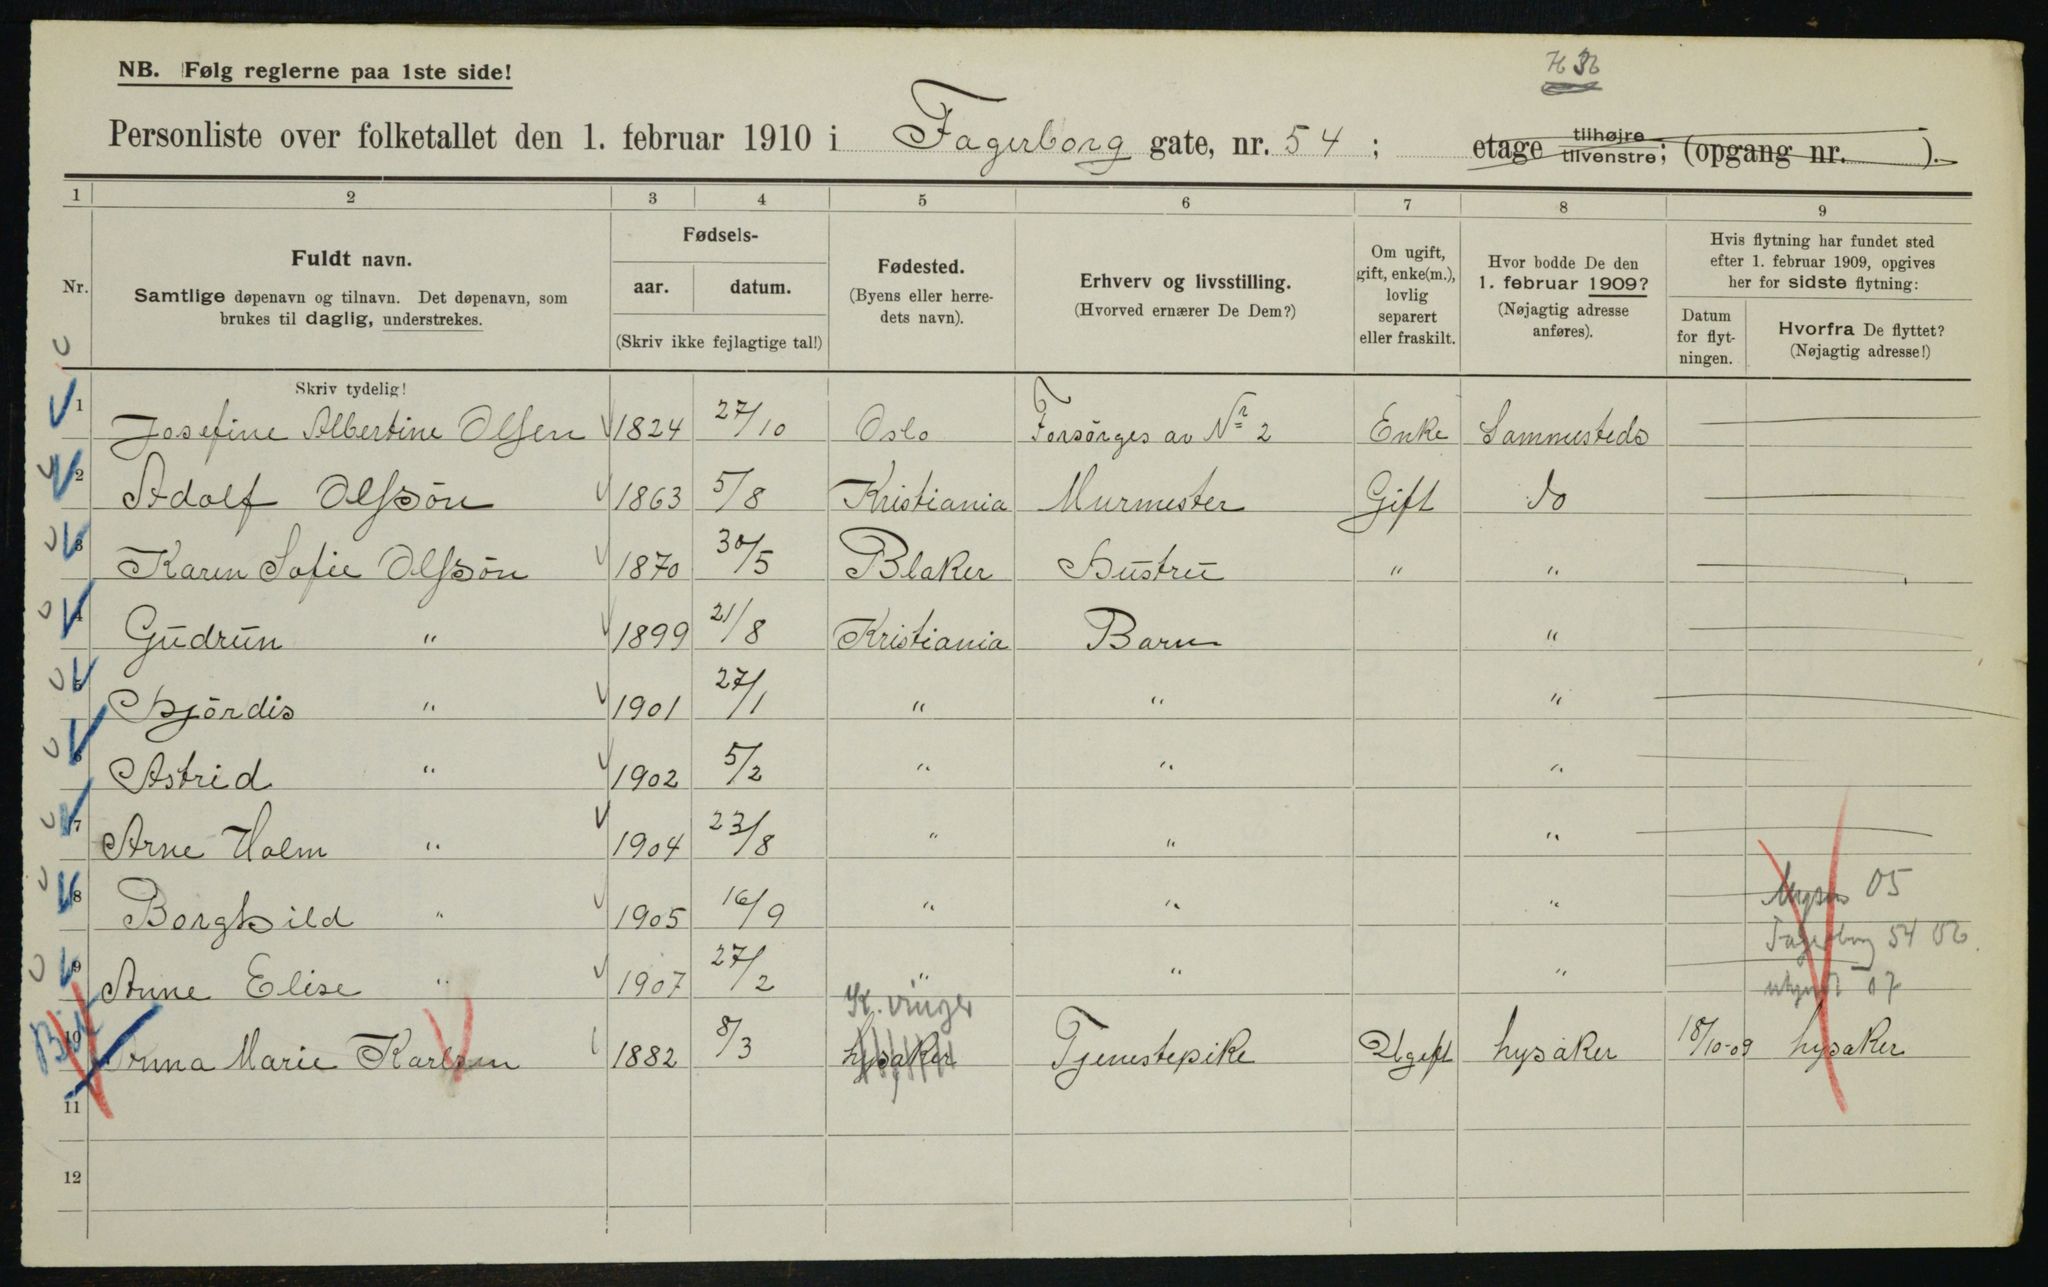 H 36
NB. Følg reglerne paa 1ste side!
Personliste over folketallet den 1. februar 1910 i Fagerborg gate, nr. 54; etage tilhøjre tilvenstre; (opgang nr. ).
1 2 3 4 5 6 7 8 9
Nr.
Fuldt navn.
Samtlige døpenavn og tilnavn. Det døpenavn, som
brukes til daglig, understrekes.
Fødsels-
aar. datum.
(Skriv ikke fejlagtige tal!)
Fødested.
(Byens eller herre-
dets navn).
Erhverv og livsstilling.
(Hvorved ernærer De Dem?)
Om ugift,
gift, enke(m.),
lovlig
separert
eller fraskilt.
Hvor bodde De den
1. februar 1909?
(Nøjagtig adresse
anføres).
Hvis flytning har fundet sted
efter 1. februar 1909, opgives
her for sidste flytning:
Datum
for flyt-
ningen.
Hvorfra De flyttet?
(Nøjagtig adresse!)
Skriv tydelig!
1 Josefine Albertine Olsen 1824 27/10 Oslo Forsørges av Nr 2 Enke Sammesteds
2 Adolf Olssön 1863 5/8 Kristiania Murmester Gift do
3 Karen Sofie Olssön 1870 30/5 Blaker Hustru " "
4 Gudrun " 1899 21/8 Kristiania Barn "
5 Hjördis " 1901 27/1 " " "
6 Astrid " 1902 5/2 " " "
7 Arne Holm " 1904 23/8 " " "
8 Borghild " 1905 16/9 " " " 05
Fagerborg 54 06.
9 Anne Elise " 1907 27/2 " " " 07
K. vinger
10 Anna Marie Karlsen 1882 8/3 Lysaker Tjenestepike Ugift Lysaker 18/10-09 Lysaker
11
12